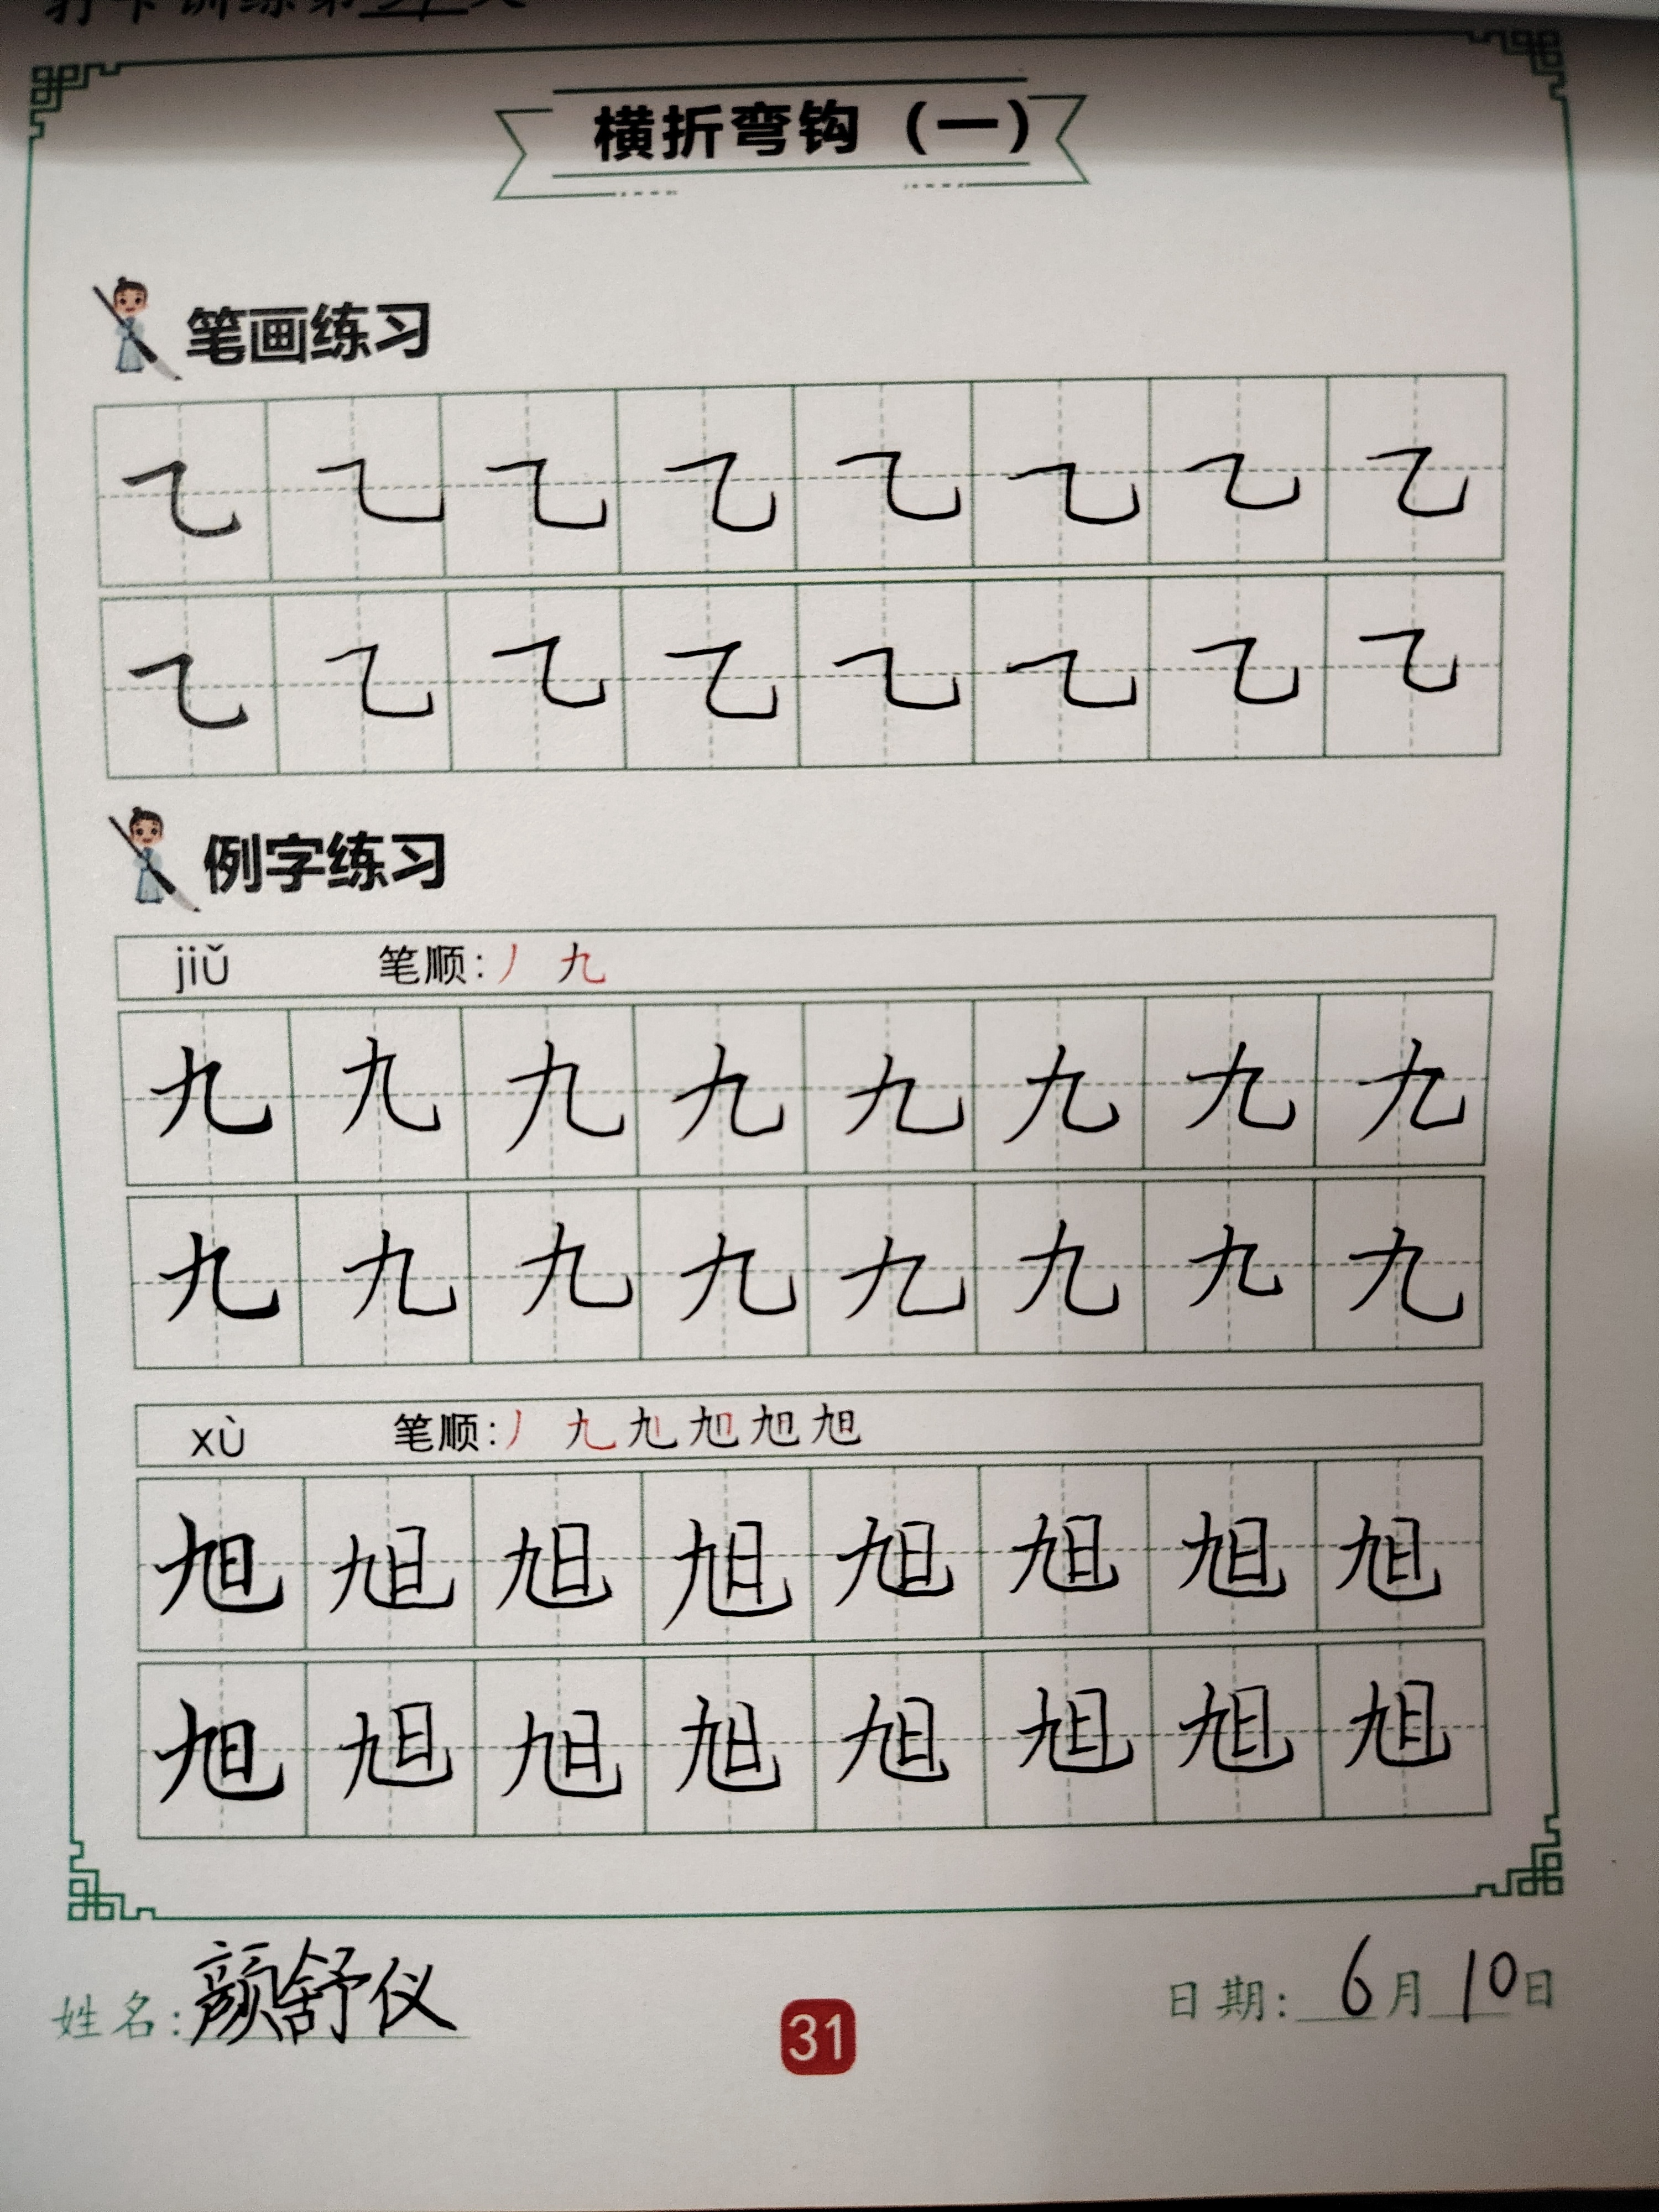 打卡训练第 天
横折弯钩（一）
笔画练习
乙 乙 乙 乙 乙 乙 乙 乙
乙 乙 乙 乙 乙 乙 乙 乙
例字练习
jiǔ 笔顺：丿 九
九 九 九 九 九 九 九 九
九 九 九 九 九 九 九 九
xù 笔顺：丿 九 旭 旭 旭
旭 旭 旭 旭 旭 旭 旭 旭
旭 旭 旭 旭 旭 旭 旭 旭
姓名：颜舒仪 31 日期：6月10日